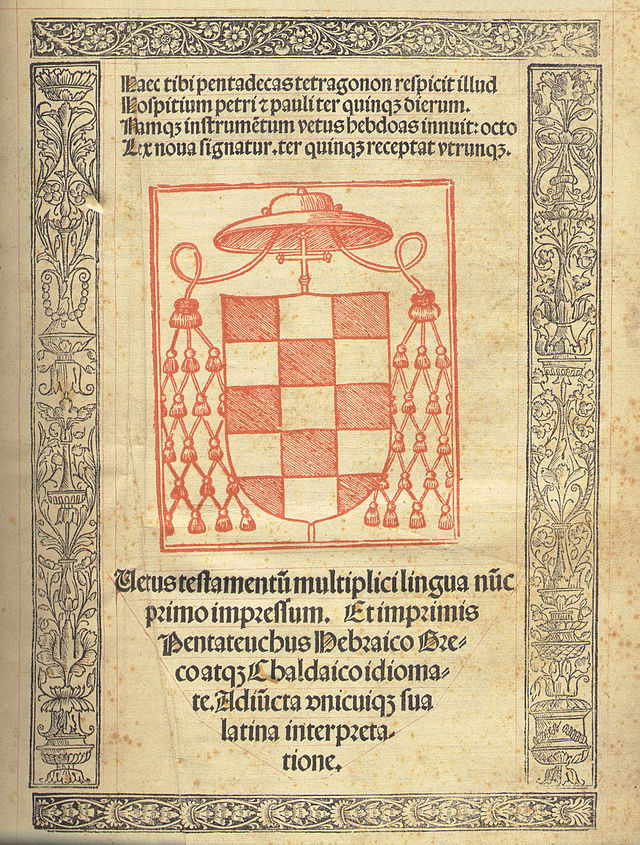 Haec tibi pentadecas tetragonon respicit illud
Hospitium petri ⁊ pauli ter quinqꝫ dierum.
Namqꝫ instrumētum vetus hebdoas innuit: octo
Lex nova signatur. ter quinqꝫ receptat vtrunqꝫ.
Uetus testamentū multiplici lingua nūc
primo impressum. Et imprimis
Pentateuchus Hebraico Gre⸗
co atqꝫ Chaldaico idioma⸗
te. Adiūcta vnicuiqꝫ sua
latina interpreta⸗
tione.